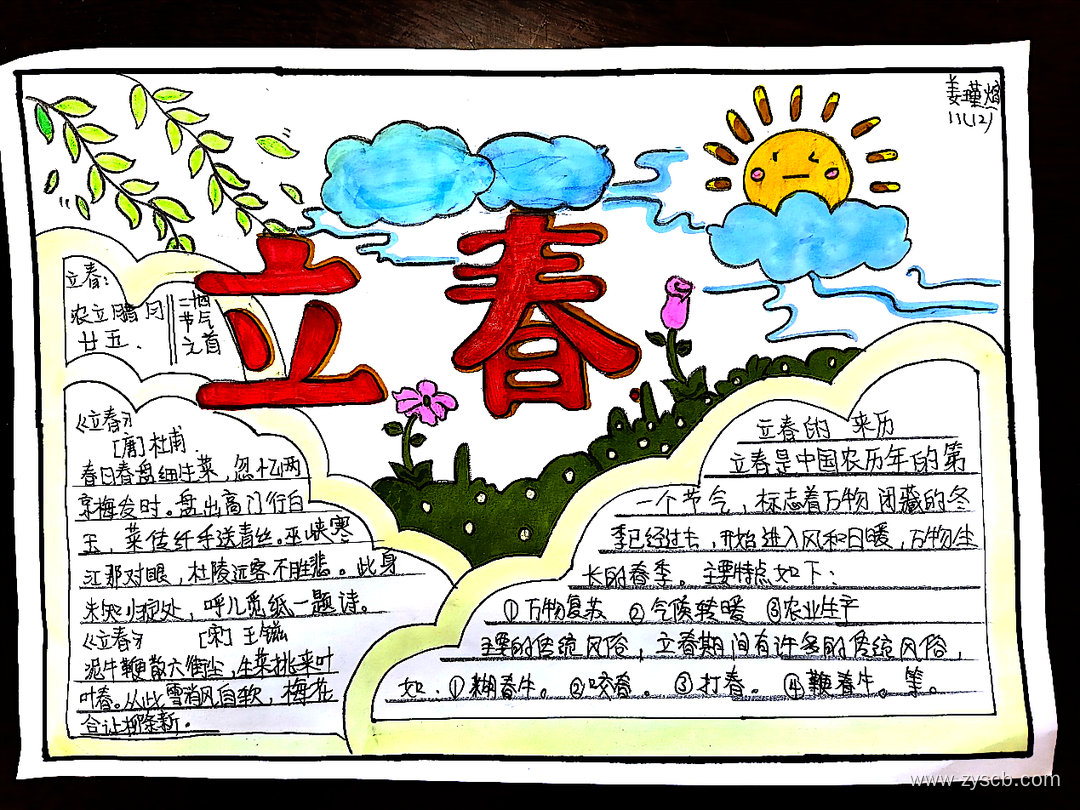 姜瑾熔
11(12)
立春
立春：
农立腊月
廿五.
二十四
节气
之首
《立春》
[唐]杜甫
春日春盘细生菜，忽忆两
京梅发时。盘出高门行白
玉，菜传纤手送青丝。巫峡寒
江那对眼，杜陵远客不胜悲。此身
未知归定处，呼儿觅纸一题诗。
《立春》 [宋]王镃
泥牛鞭散六街尘，生菜挑来叶
叶春。从此雪消风自软，梅花
合让柳条新.
立春的 来历
立春是中国农历年的第
一个节气，标志着万物闭藏的冬
季已经过去，开始进入风和日暖，万物生
长的春季。主要特点如下：
①万物复苏 ②气候转暖 ③农业生产
主要的传统风俗，立春期间有许多的传统风俗，
如.①糊春牛。②咬春.③打春。④鞭春牛。等。
www.zyscb.com